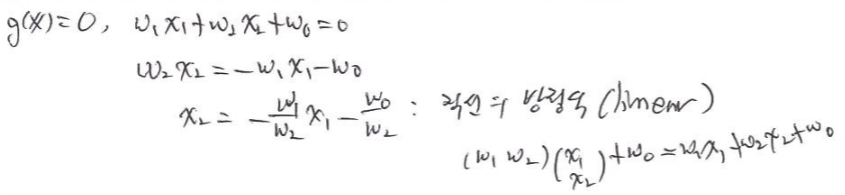 g(x)=0, w₁x₁+w₂x₂+w₀=0
w₂x₂=-w₁x₁-w₀
x₂=-\frac{w₁}{w₂}x₁-\frac{w₀}{w₂} : 직선의 방정식 (linear)
(w₁ w₂)\binom{x₁}{x₂}+w₀=w₁x₁+w₂x₂+w₀